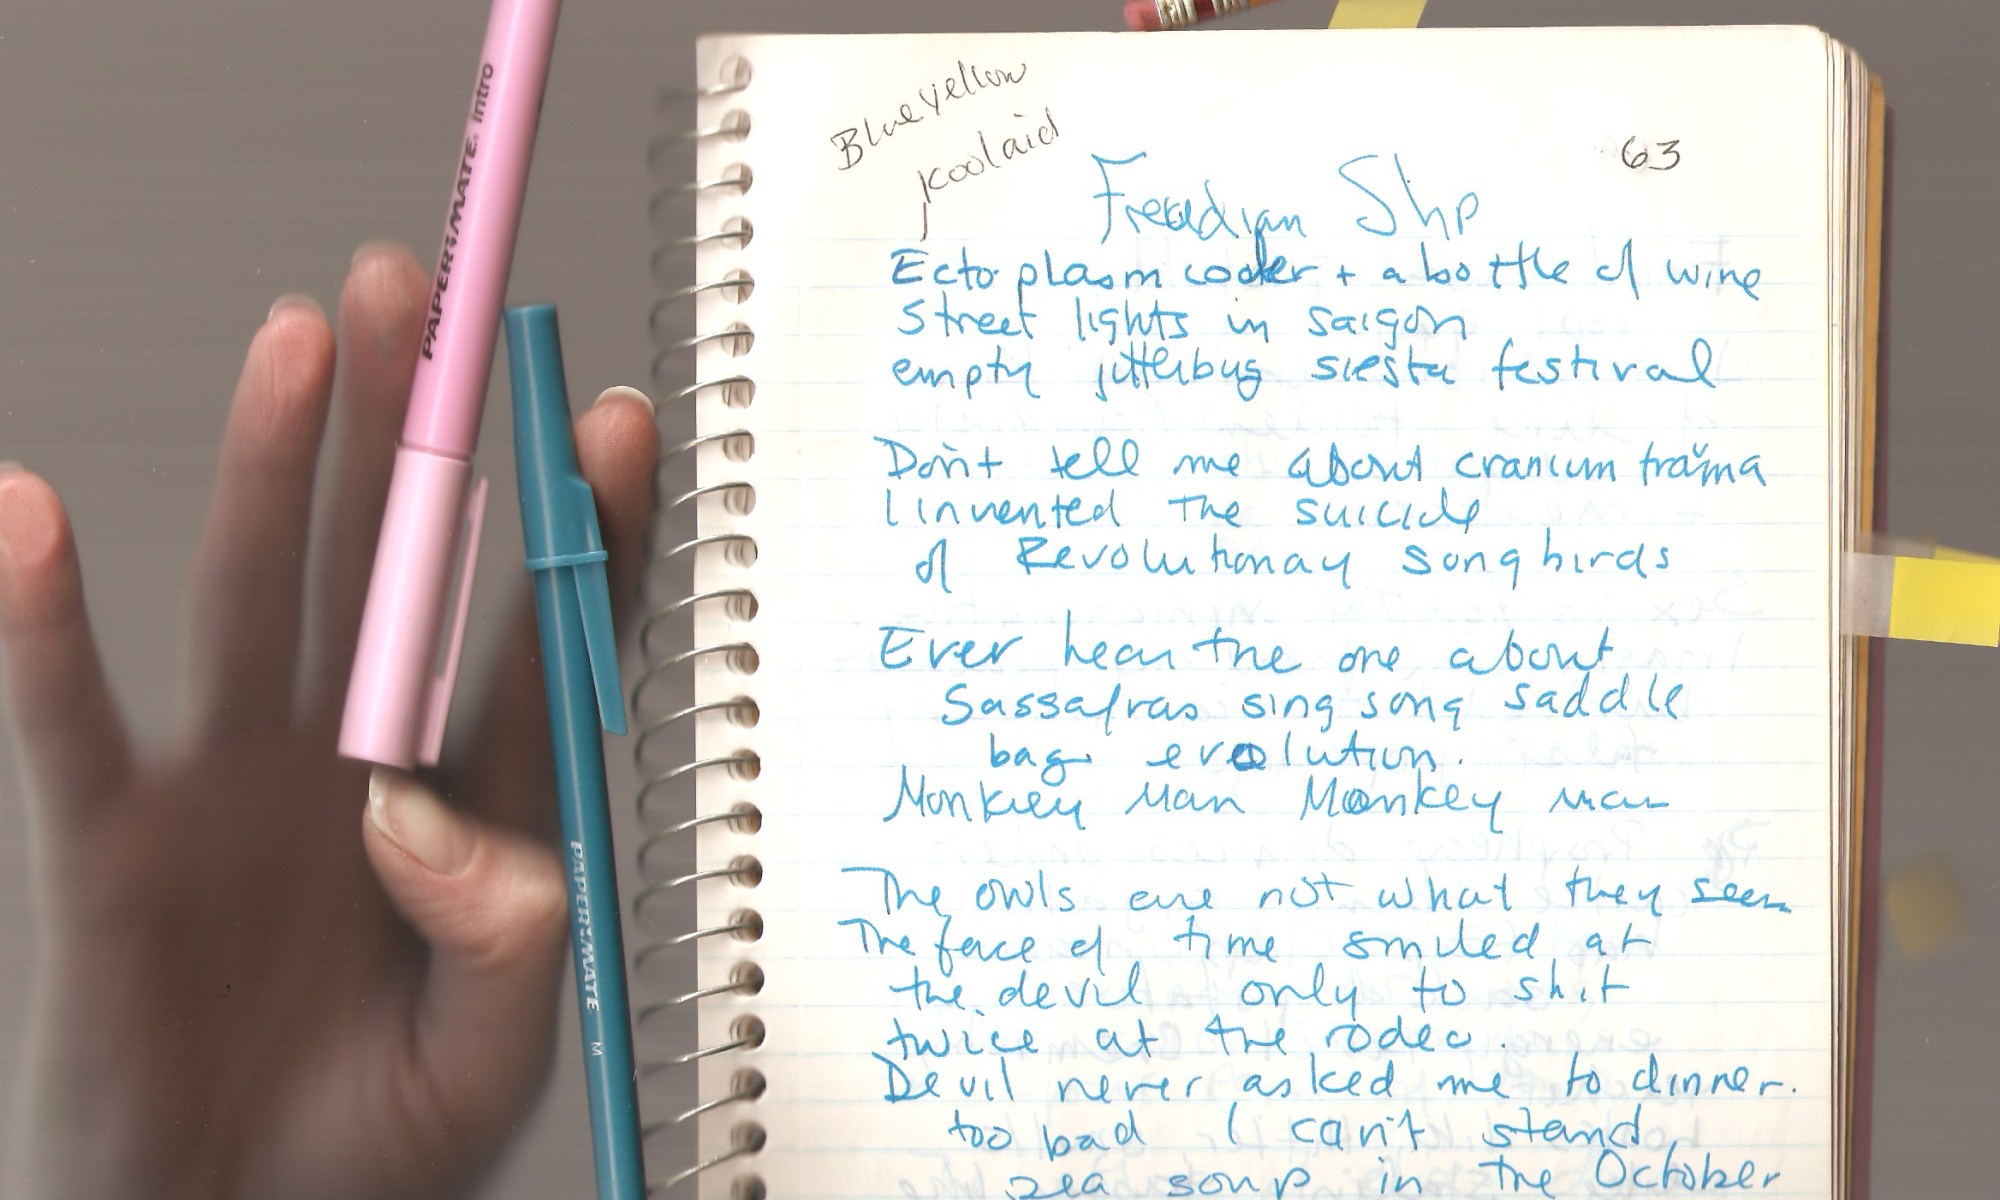 PAPERMATE. intro
PAPERMATE M
Blue yellow
koolaid
63
Freudian Slip
Ectoplasm cooler + a bottle of wine
Street lights in saigon
empty jitterbug siesta festival
Don't tell me about cranium trauma
I invented the suicide
of Revolutionay songbirds
Ever hear the one about
Sassafras sing song saddle
bag evolution.
Monkey Man Monkey man
The owls are not what they seem
The face of time smiled at
the devil only to shit
twice at the rodeo.
Devil never asked me to dinner.
too bad I can't stand
pea soup in the October